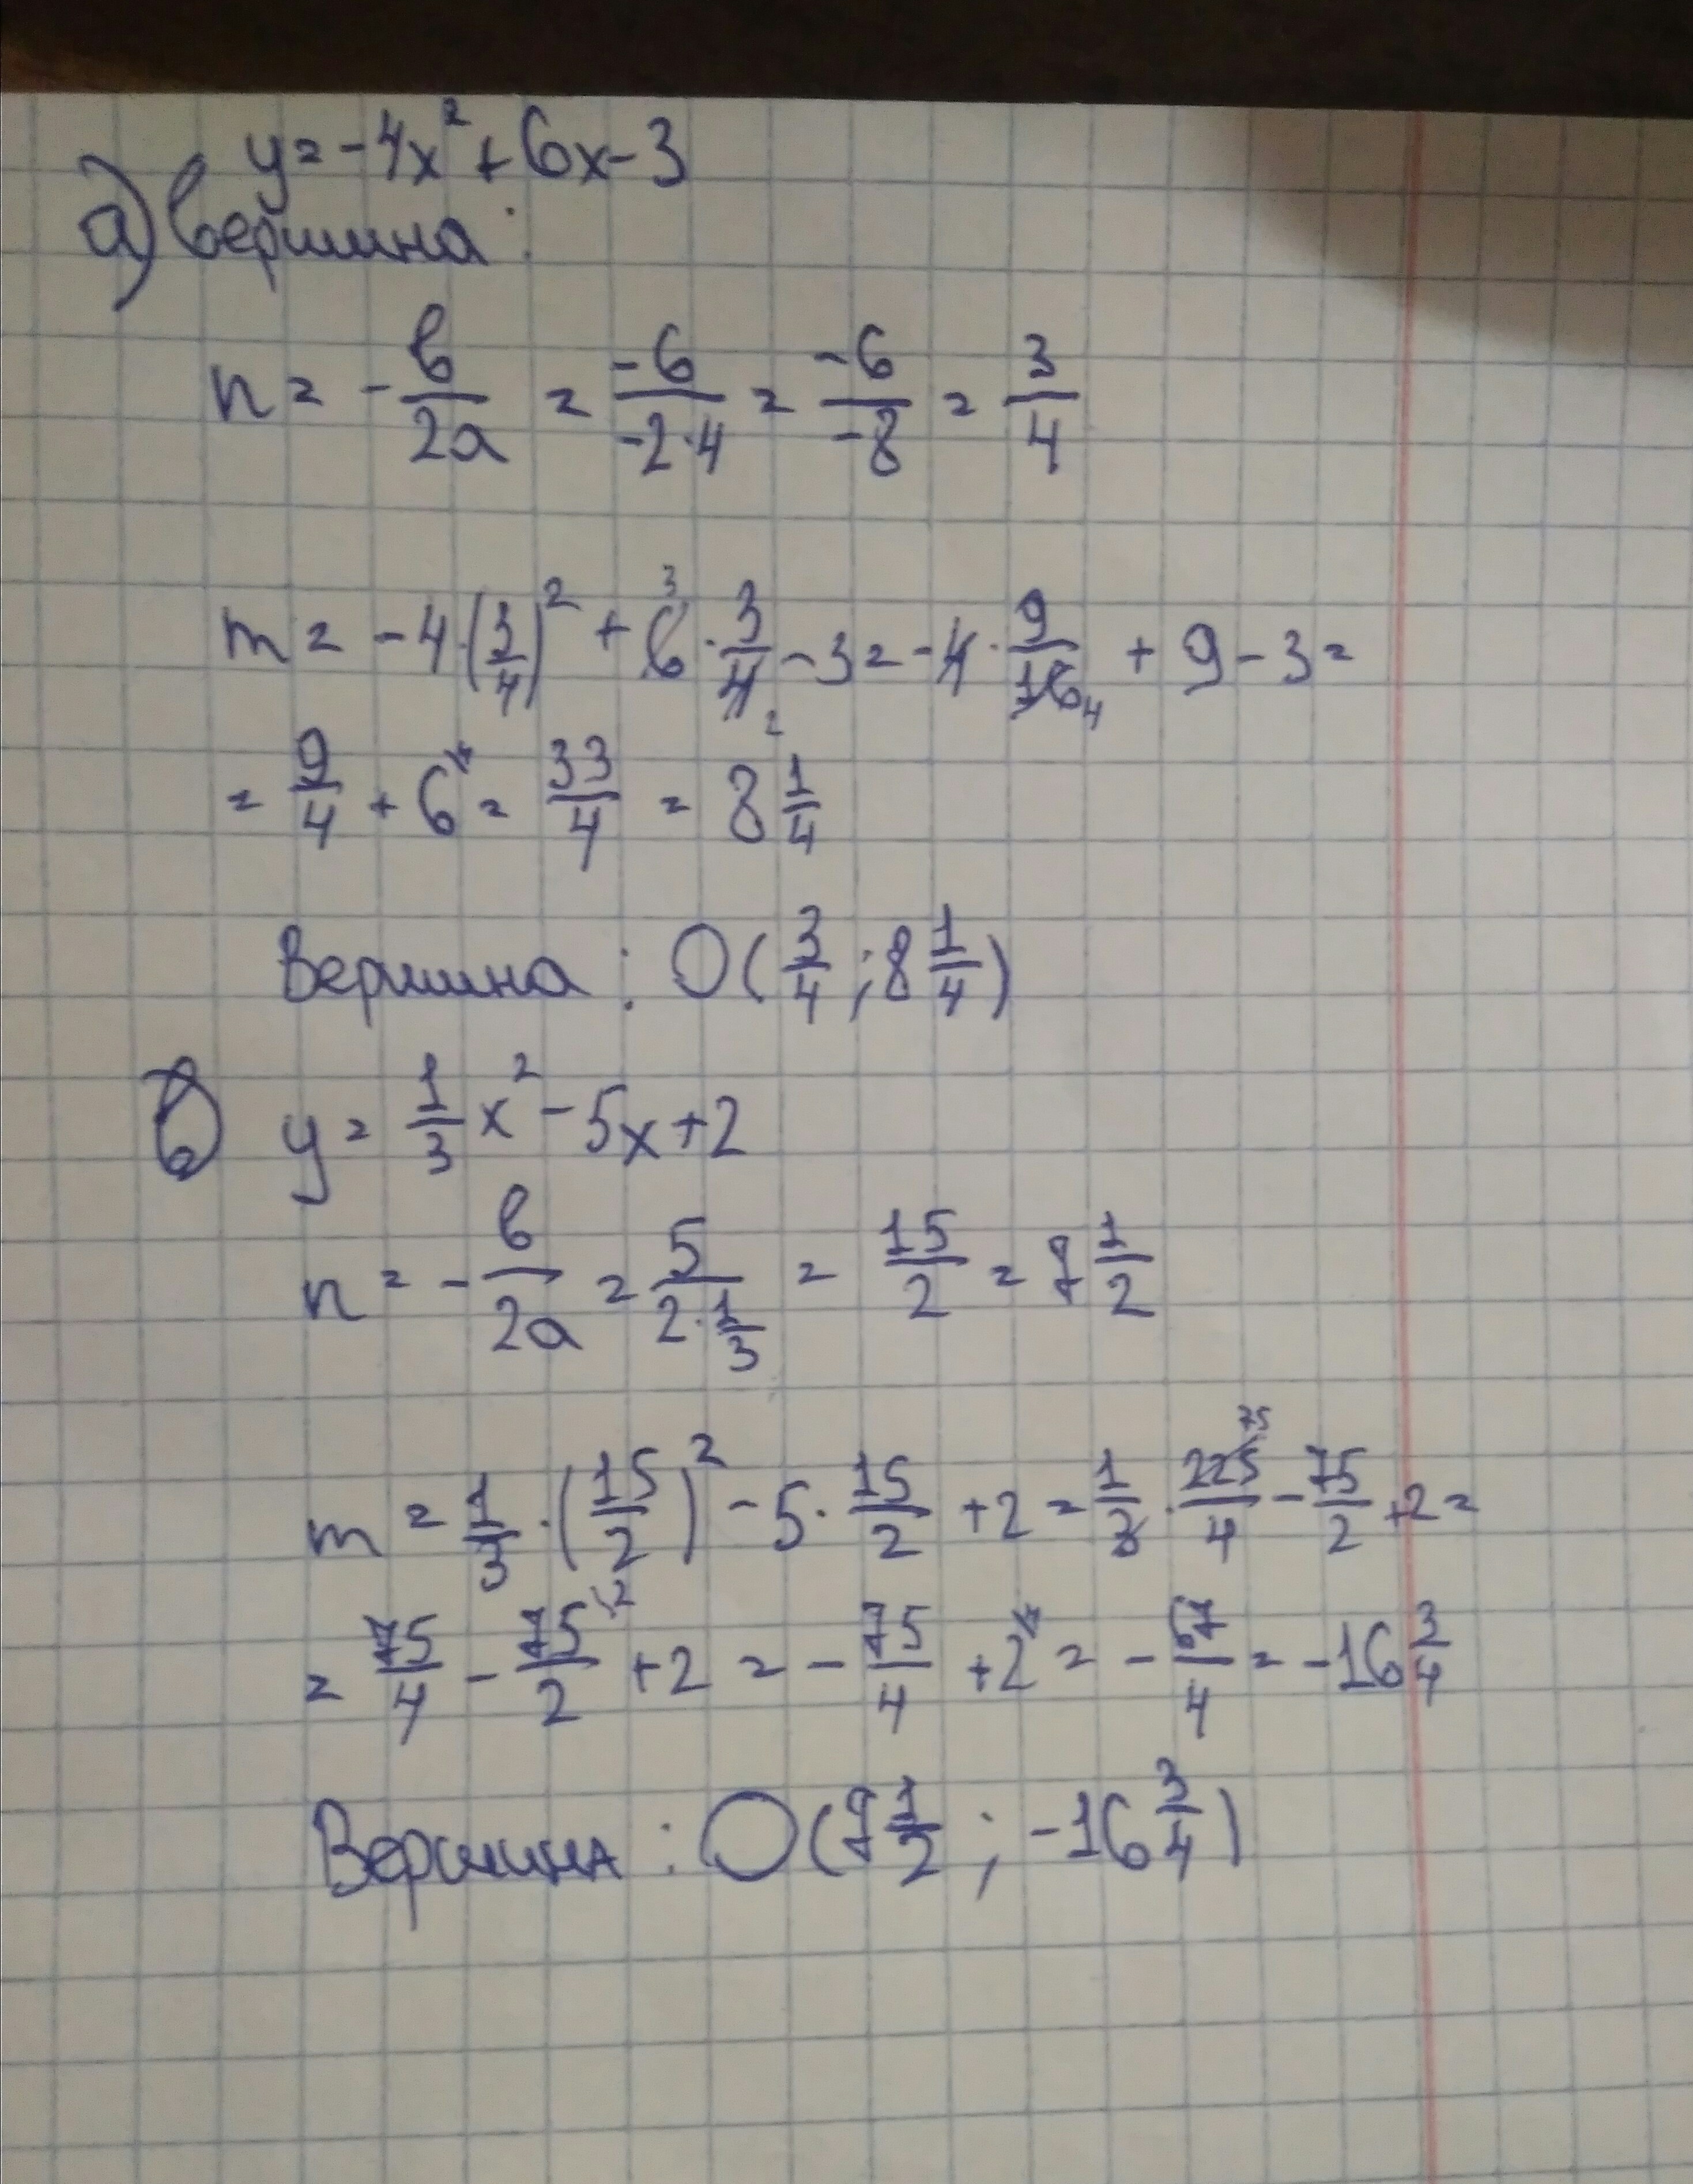 y=-4x²+6x-3
а) вершина:
n = -в/2a = -6/-2·4 = -6/-8 = 3/4
m = -4·(3/4)² + 6³·3/4₂ - 3 = -4·9/16₄ + 9 - 3 =
= 9/4 + 6\⁴ = 33/4 = 8 1/4
Вершина: O(3/4; 8 1/4)
б) y = 1/3x² - 5x + 2
n = -в/2a = 5/2·1/3 = 15/2 = 7 1/2
m = 1/3·(15/2)² - 5·15/2 + 2 = 1/3·225⁷⁵/4 - 75/2 + 2 =
= 75/4 - 75\²/2 + 2 = -75/4 + 2\⁴ = -67/4 = -16 3/4
Вершина: O(7 1/2; -16 3/4)